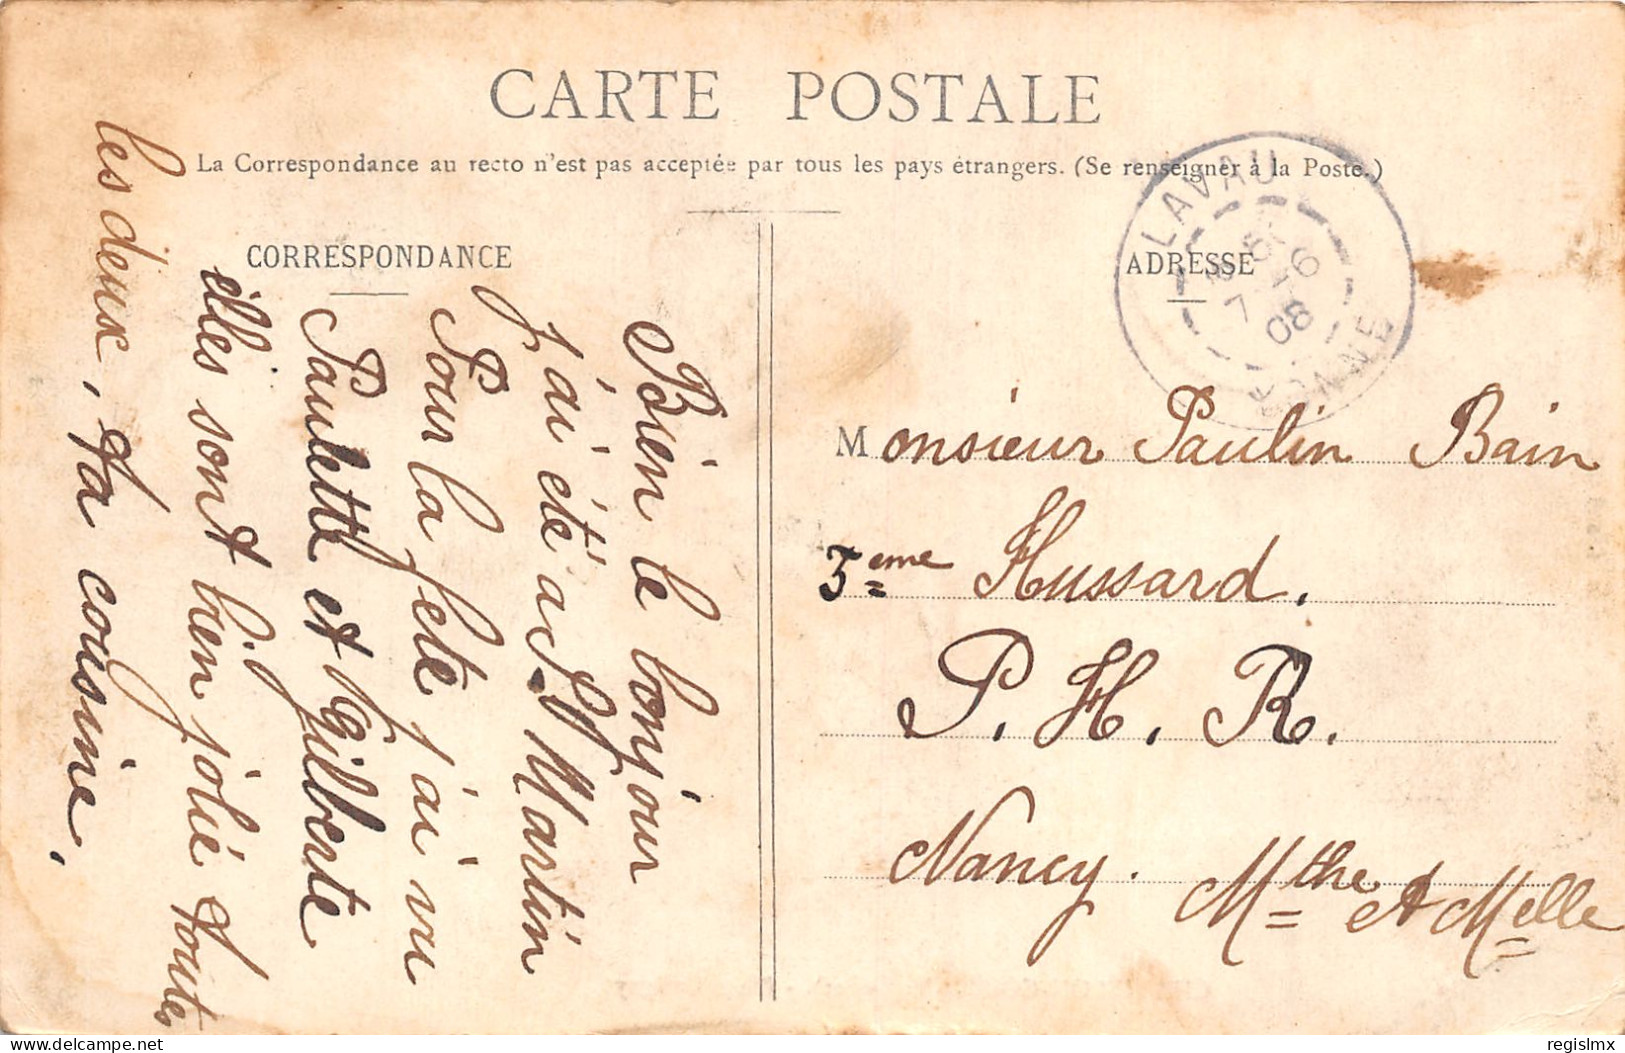 CARTE POSTALE
La Correspondance au recto n'est pas acceptée par tous les pays étrangers. (Se renseigner à la Poste.)
CORRESPONDANCE
Bien le bonjour
j'ai été a St Martin
Pour la fete j'ai vu
Paulette et Gilberte
elles sont bien jolie toutes
les deux, ta cousine.
ADRESSE
Monsieur Paulin Bain
eme Hussard.
P. H. R.
Nancy. Mthe et Melle
LAVAU
YONNE
7 -6
08
delcampe.net
regislmx